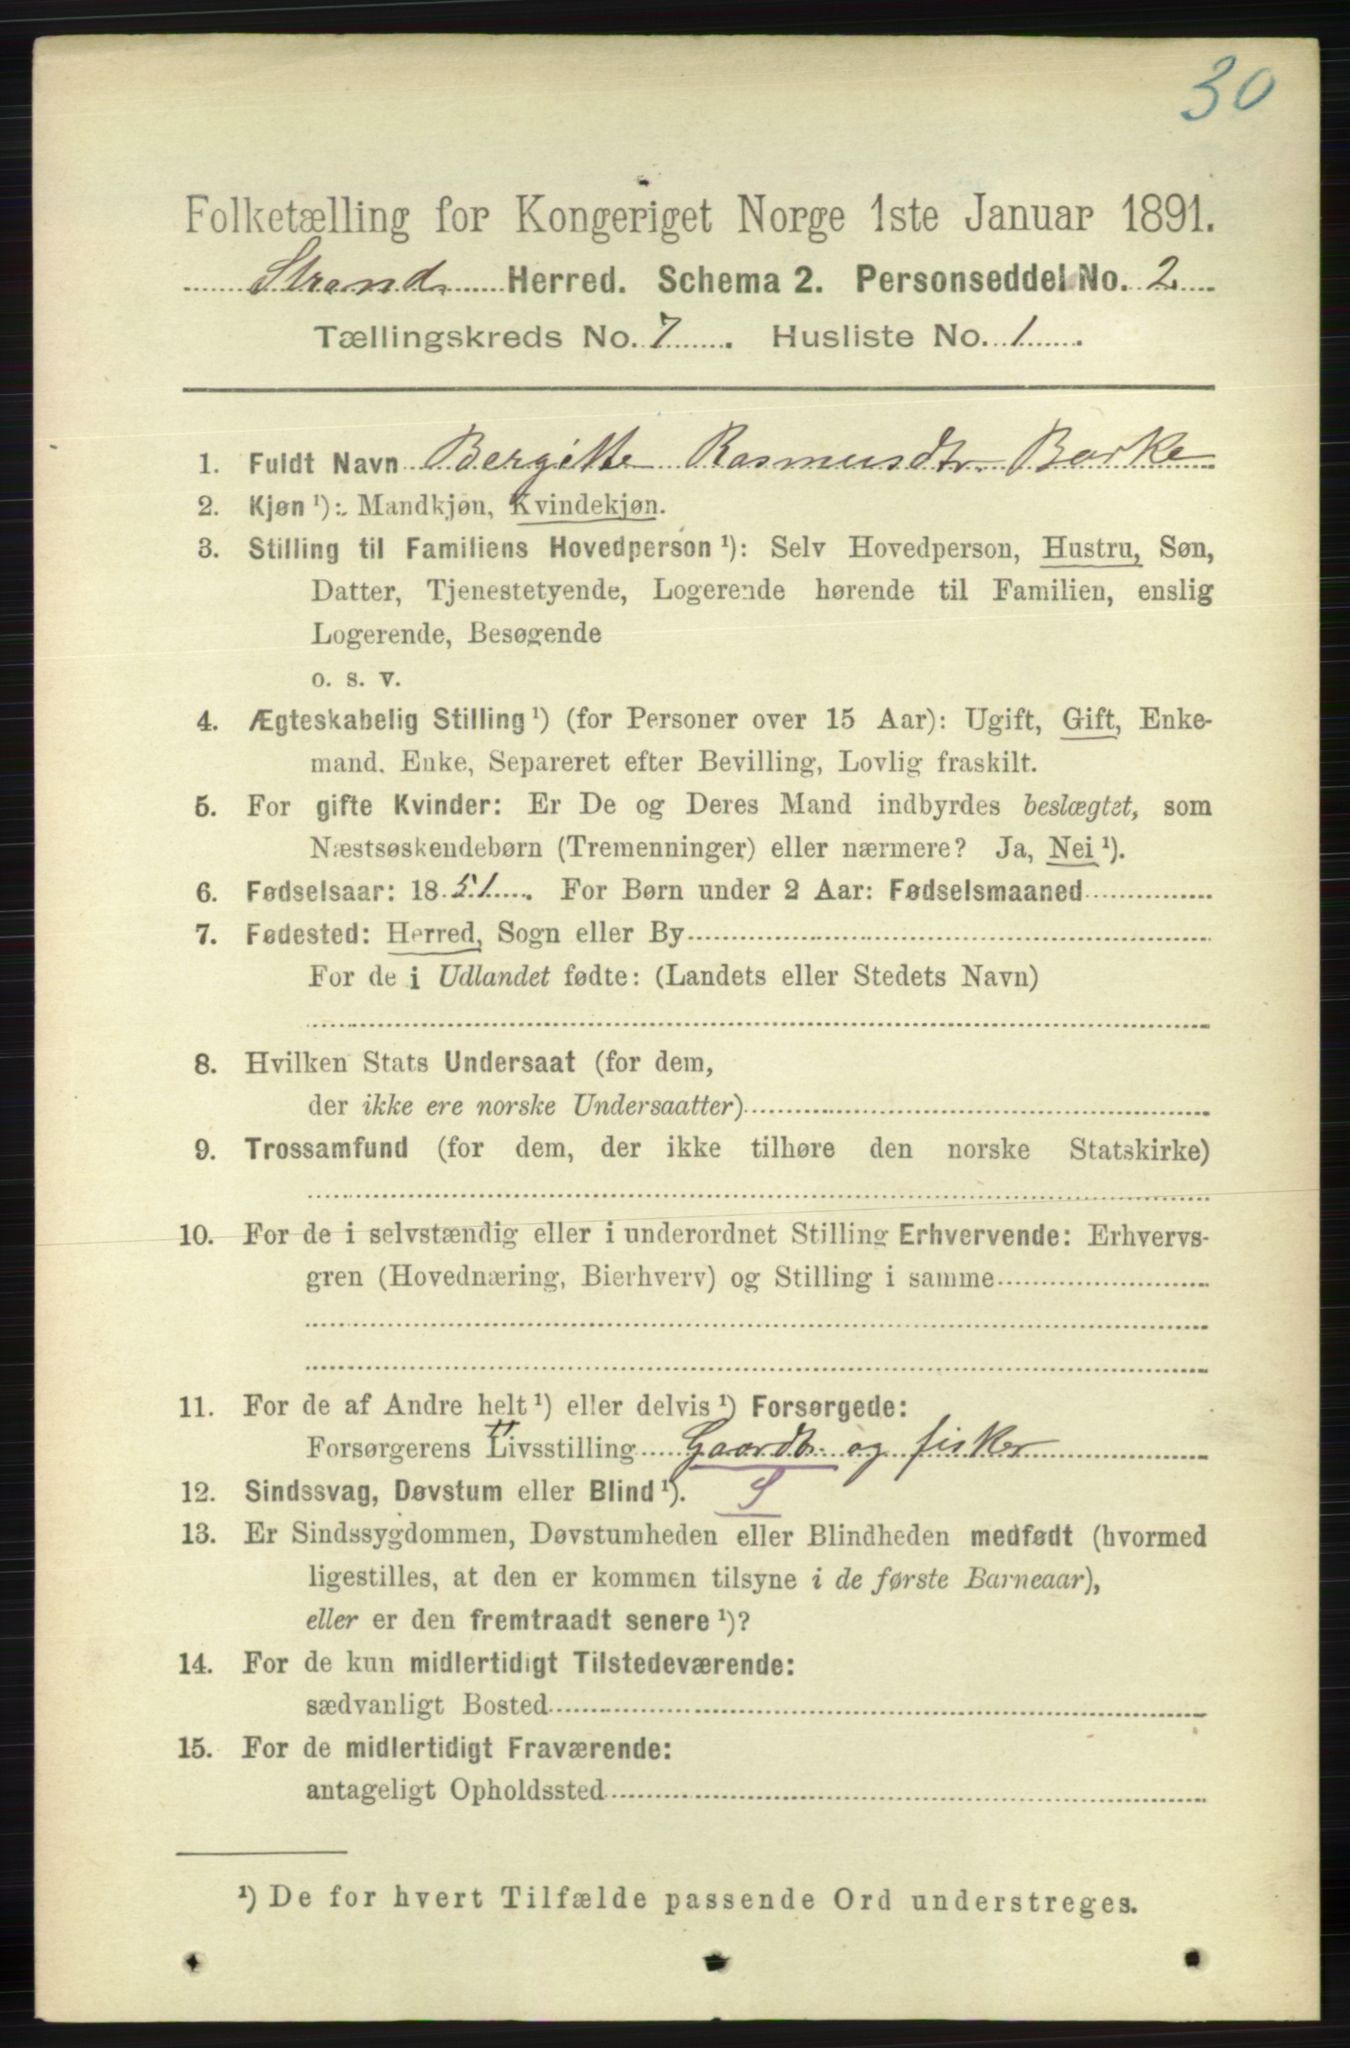 30
Folketælling for Kongeriget Norge 1ste Januar 1891.
Strand Herred. Schema 2. Personseddel No. 2
Tællingskreds No. 7 . Husliste No. 1 .
1. Fuldt Navn Bergitte Rasmusdtr. Barke
2. Kjøn ¹): Mandkjøn, Kvindekjøn.
3. Stilling til Familiens Hovedperson ¹): Selv Hovedperson, Hustru, Søn,
Datter, Tjenestetyende, Logerende hørende til Familien, enslig
Logerende, Besøgende
o. s. v.
4. Ægteskabelig Stilling ¹) (for Personer over 15 Aar): Ugift, Gift, Enke-
mand, Enke, Separeret efter Bevilling, Lovlig fraskilt.
5. For gifte Kvinder: Er De og Deres Mand indbyrdes beslægtet, som
Næstsøskendebørn (Tremenninger) eller nærmere? Ja, Nei ¹).
6. Fødselsaar: 1851. For Børn under 2 Aar: Fødselsmaaned
7. Fødested: Herred, Sogn eller By
For de i Udlandet fødte: (Landets eller Stedets Navn)
8. Hvilken Stats Undersaat (for dem,
der ikke ere norske Undersaatter)
9. Trossamfund (for dem, der ikke tilhøre den norske Statskirke)
10. For de i selvstændig eller i underordnet Stilling Erhvervende: Erhvervs-
gren (Hovednæring, Bierhverv) og Stilling i samme
11. For de af Andre helt ¹) eller delvis ¹) Forsørgede:
Forsørgerens Livsstilling Gaardb. og fisker
12. Sindssvag, Døvstum eller Blind ¹). S
13. Er Sindssygdommen, Døvstumheden eller Blindheden medfødt (hvormed
ligestilles, at den er kommen tilsyne i de første Barneaar),
eller er den fremtraadt senere ¹)?
14. For de kun midlertidigt Tilstedeværende:
sædvanligt Bosted
15. For de midlertidigt Fraværende:
antageligt Opholdssted
¹) De for hvert Tilfælde passende Ord understreges.